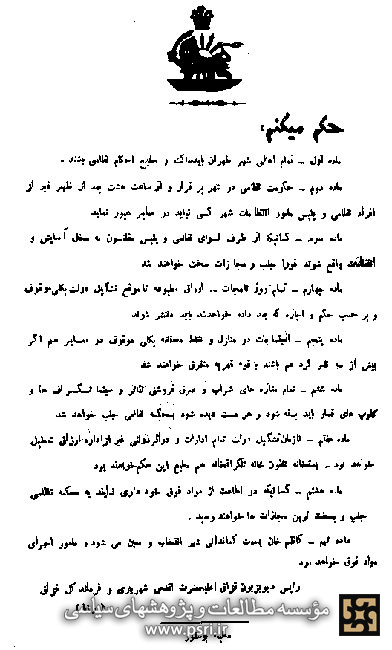 حکم میکنم:
ماده اول – تمام اهالی شهر طهران باید ساکت و مطیع احکام نظامی باشند.
ماده دویم – حکومت نظامی در شهر بر قرار و از ساعت هشت بعد از ظهر غیر از
افراد نظامی و پلیس مامور انتظامات شهر کسی نباید در معابر عبور نماید.
ماده سوم – کسانیکه از طرف قوای نظامی و پلیس مظنون به مخل آسایش و
انتظامات واقع شوند فورا جلب و مجازات سخت خواهند شد
ماده چهارم – تمام روزنامجات – اوراق مطبوعه تا موقع تشکیل دولت بکلی موقوف
و بر حسب حکم و اجازه که بعد داده خواهد شد باید منتشر شوند
ماده پنجم – اجتماعات در منازل و نقاط مختلفه بکلی موقوف در معابر هم اگر
بیش از سه نفر گرد هم باشند با قوه قهریه متفرق خواهند شد
ماده ششم – تمام مغازه های شراب و عرق فروشی تئاتر و سینما فتگراف ها و
کلوپ های قمار باید بسته شود و هر مست دیده شود بمحکمه نظامی جلب خواهد شد
ماده هفتم – تا زمان تشکیل دولت تمام ادارات و دوائر دولتی غیر از اداره ارزاق تعطیل
خواهد بود – پستخانه تلفون خانه تلگرافخانه هم مطیع این حکم خواهند بود
ماده هشتم – کسانیکه در اطاعت از مواد فوق خود داری نمایند به محکمه نظامی
جلب و بسخت ترین مجازات ها خواهند رسید.
ماده نهم – کاظم خان بسمت کماندانی شهر انتخاب و معین می شود و مامور اجرای
مواد فوق خواهد بود
رئیس دیویزیون قزاق اعلیحضرت اقدس شهریاری و فرمانده کل قوا
مؤسسه مطالعات و پژوهشهای سیاسی
www.psri.ir